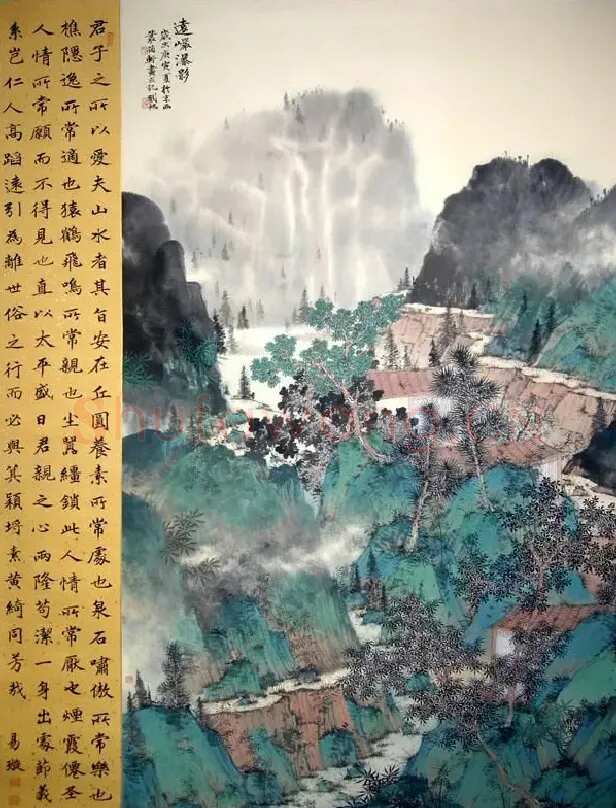 瀑影
歲次庚寅夏於京西
君子之所以愛夫山水者其旨安在丘園養素所常處也泉石嘯傲所常樂也
樵隱逸所常適也猿鶴飛鳴所常親也塵囂繮鎖此人情所常厭也煙霞僊圣
人情所常願而不得見也直以太平盛日君親之心兩隆苟潔一身出處節義
系豈仁人高蹈遠引為離世俗之行而必與箕穎埒素黃綺同芳哉
易璇